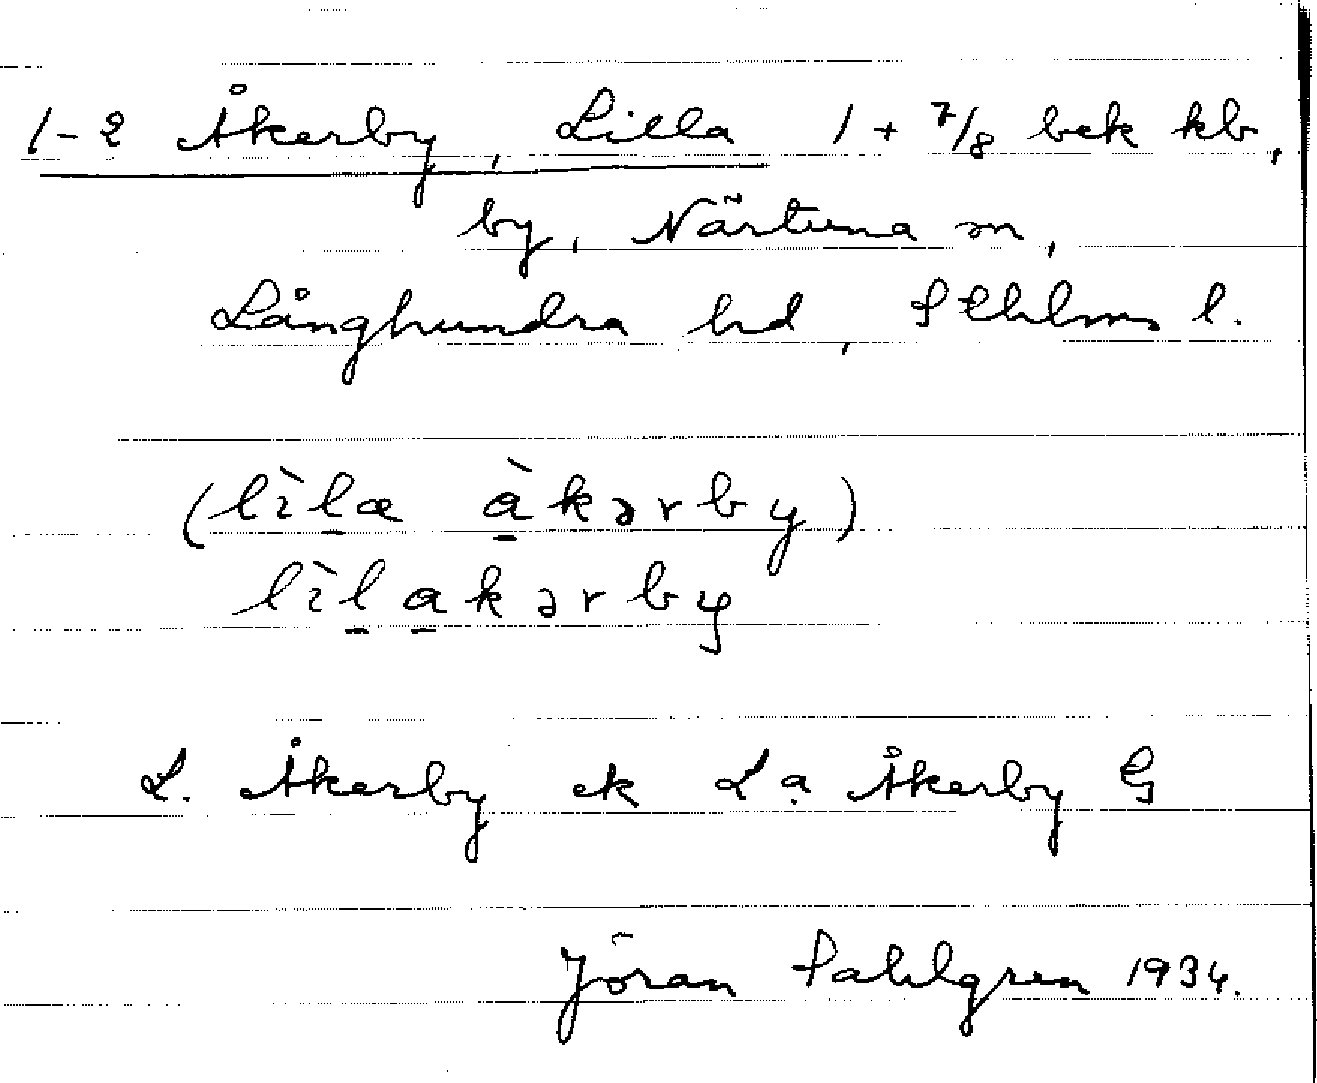 1-2 Åkerby, Lilla 1 + 7/8 bek kb,
by, Närtuna sn,
Långhundra hd, Sthlms l.
(lìla àkərby)
lìlakərby
L. Åkerby ek La Åkerby G
Jöran Sahlgren 1934.